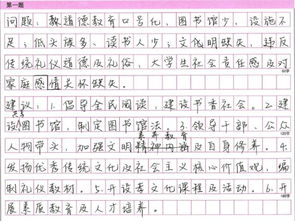 第一题
问题：教道德教育口号化，图书馆少，设施不
足；低头族多、读书人少；文化明缺失，违反
传统美德及礼仪风俗，大学生社会责任感及对
家庭感情关怀缺失。
建议：1.倡导全民阅读，建设书香社会。2.建
共享
设图书馆，制定图书馆法。3.领导干部、公众
素养教育
人物带头，加强文明精神内涵及自身修养。4.
发扬优秀传统文化及社会主义核心价值观，编
制礼仪教材。5.开设孝文化课程及活动。6.开
展素质教育及人才培养。